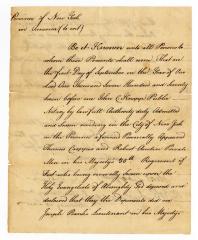 Province of New York
in America
Be it Known unto all Persons to
whom these Presents shall come That on
the first Day of September in the Year of Our
Lord One Thousand Seven Hundred and Seventy
before me John Public
Notary by lawfull Authority duly Admitted
and Sworn residing in the City of New York
in the Province aforesaid Personally Appeared
Thomas and Robert Private
Men in his Majestys Regiment of
Foot who being severally Sworn upon the
Holy Evangelists of Almighty God deposed and
declared that they the Deponents did
Joseph Lieutenant in his Majestys